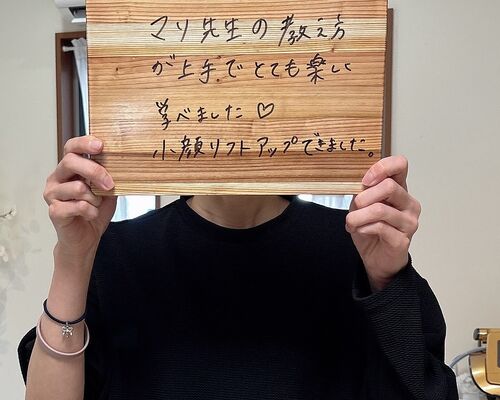 マリ先生の教え方
が上手でとても楽しく
学べました♡
小顔リフトアップできました。